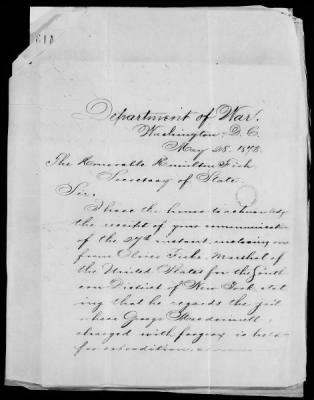 Department of War.
Washington, D.C.
May 28. 1873.
The Honorable Hamilton Fish
Secretary of State.
Sir.
I have the honor to acknowledge
the receipt of your communication
of the 27th instant, enclosing one
from Oliver Fiske, Marshal of
the United States for the South-
ern District of New York, stat-
ing that he regards the jail
where George Macdonnell,
charged with forgery is held
for extradition,